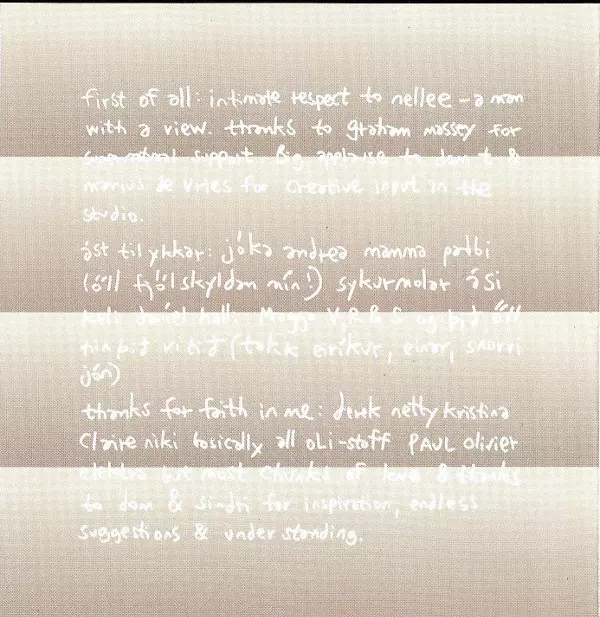 first of all: intimate respect to nellee – a man
with a view. thanks to graham massey for
support. Big applause to &
marius de vries for creative input in the
studio.
ást til ykkar: jóka andrea mamma pabbi
(öll fjölskyldan mín!) sykurmolar ási
daníel og þið öll
(takk eiríkur, einar, snorri
jón)
thanks for faith in me: derek netty kristina
Claire niki basically all oLi-staff PAUL olivier
but most chunks of love & thanks
to dom & sindri for inspiration, endless
suggestions & understanding.